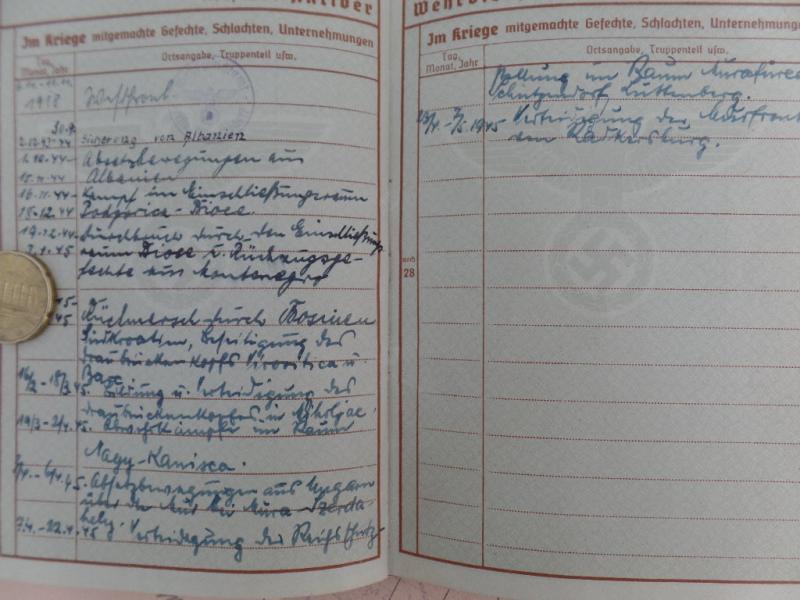 Im Kriege mitgemachte Gefechte, Schlachten, Unternehmungen
Tag, Monat, Jahr
Ortsangabe, Truppenteil usw.
1918 Westfront.
30.9.
2.12.43-44 Sicherung von Albanien
1.10.44- Absetzbewegungen aus
15.11.44 Albanien
16.11.44- Kampf im Einschließungsraum
18.12.44 Podgorica-Bioce.
19.12.44- Durchbruch durch den Einschließungs
raum Bioce u. Rückzugsge-
fechte aus Montenegro
45- Rückmarsch durch Bosnien
45 Südkroatien, Beseitigung des
Draubrückenkopfs Virovitica u.
Barc
18/3.45. Bildung u. Verteidigung des
Draubrückenkopfes in
19/3-2/4.45. Abwehrkämpfe im Raum
Nagy-Kanisca.
6/4.45. Absetzbewegungen aus Ungarn
über die Mur bei Mura-Szerda-
hely.
7.4.-22.4.45 Verteidigung der Reichsschutz-
Wehrdie
Im Kriege mitgemachte Gefechte, Schlachten, Unternehmungen
Tag, Monat, Jahr
Ortsangabe, Truppenteil usw.
stellung im Raum
Schützendorf, Luttenberg.
1945 Verteidigung der Murfront
um Radkersburg.
noch
28